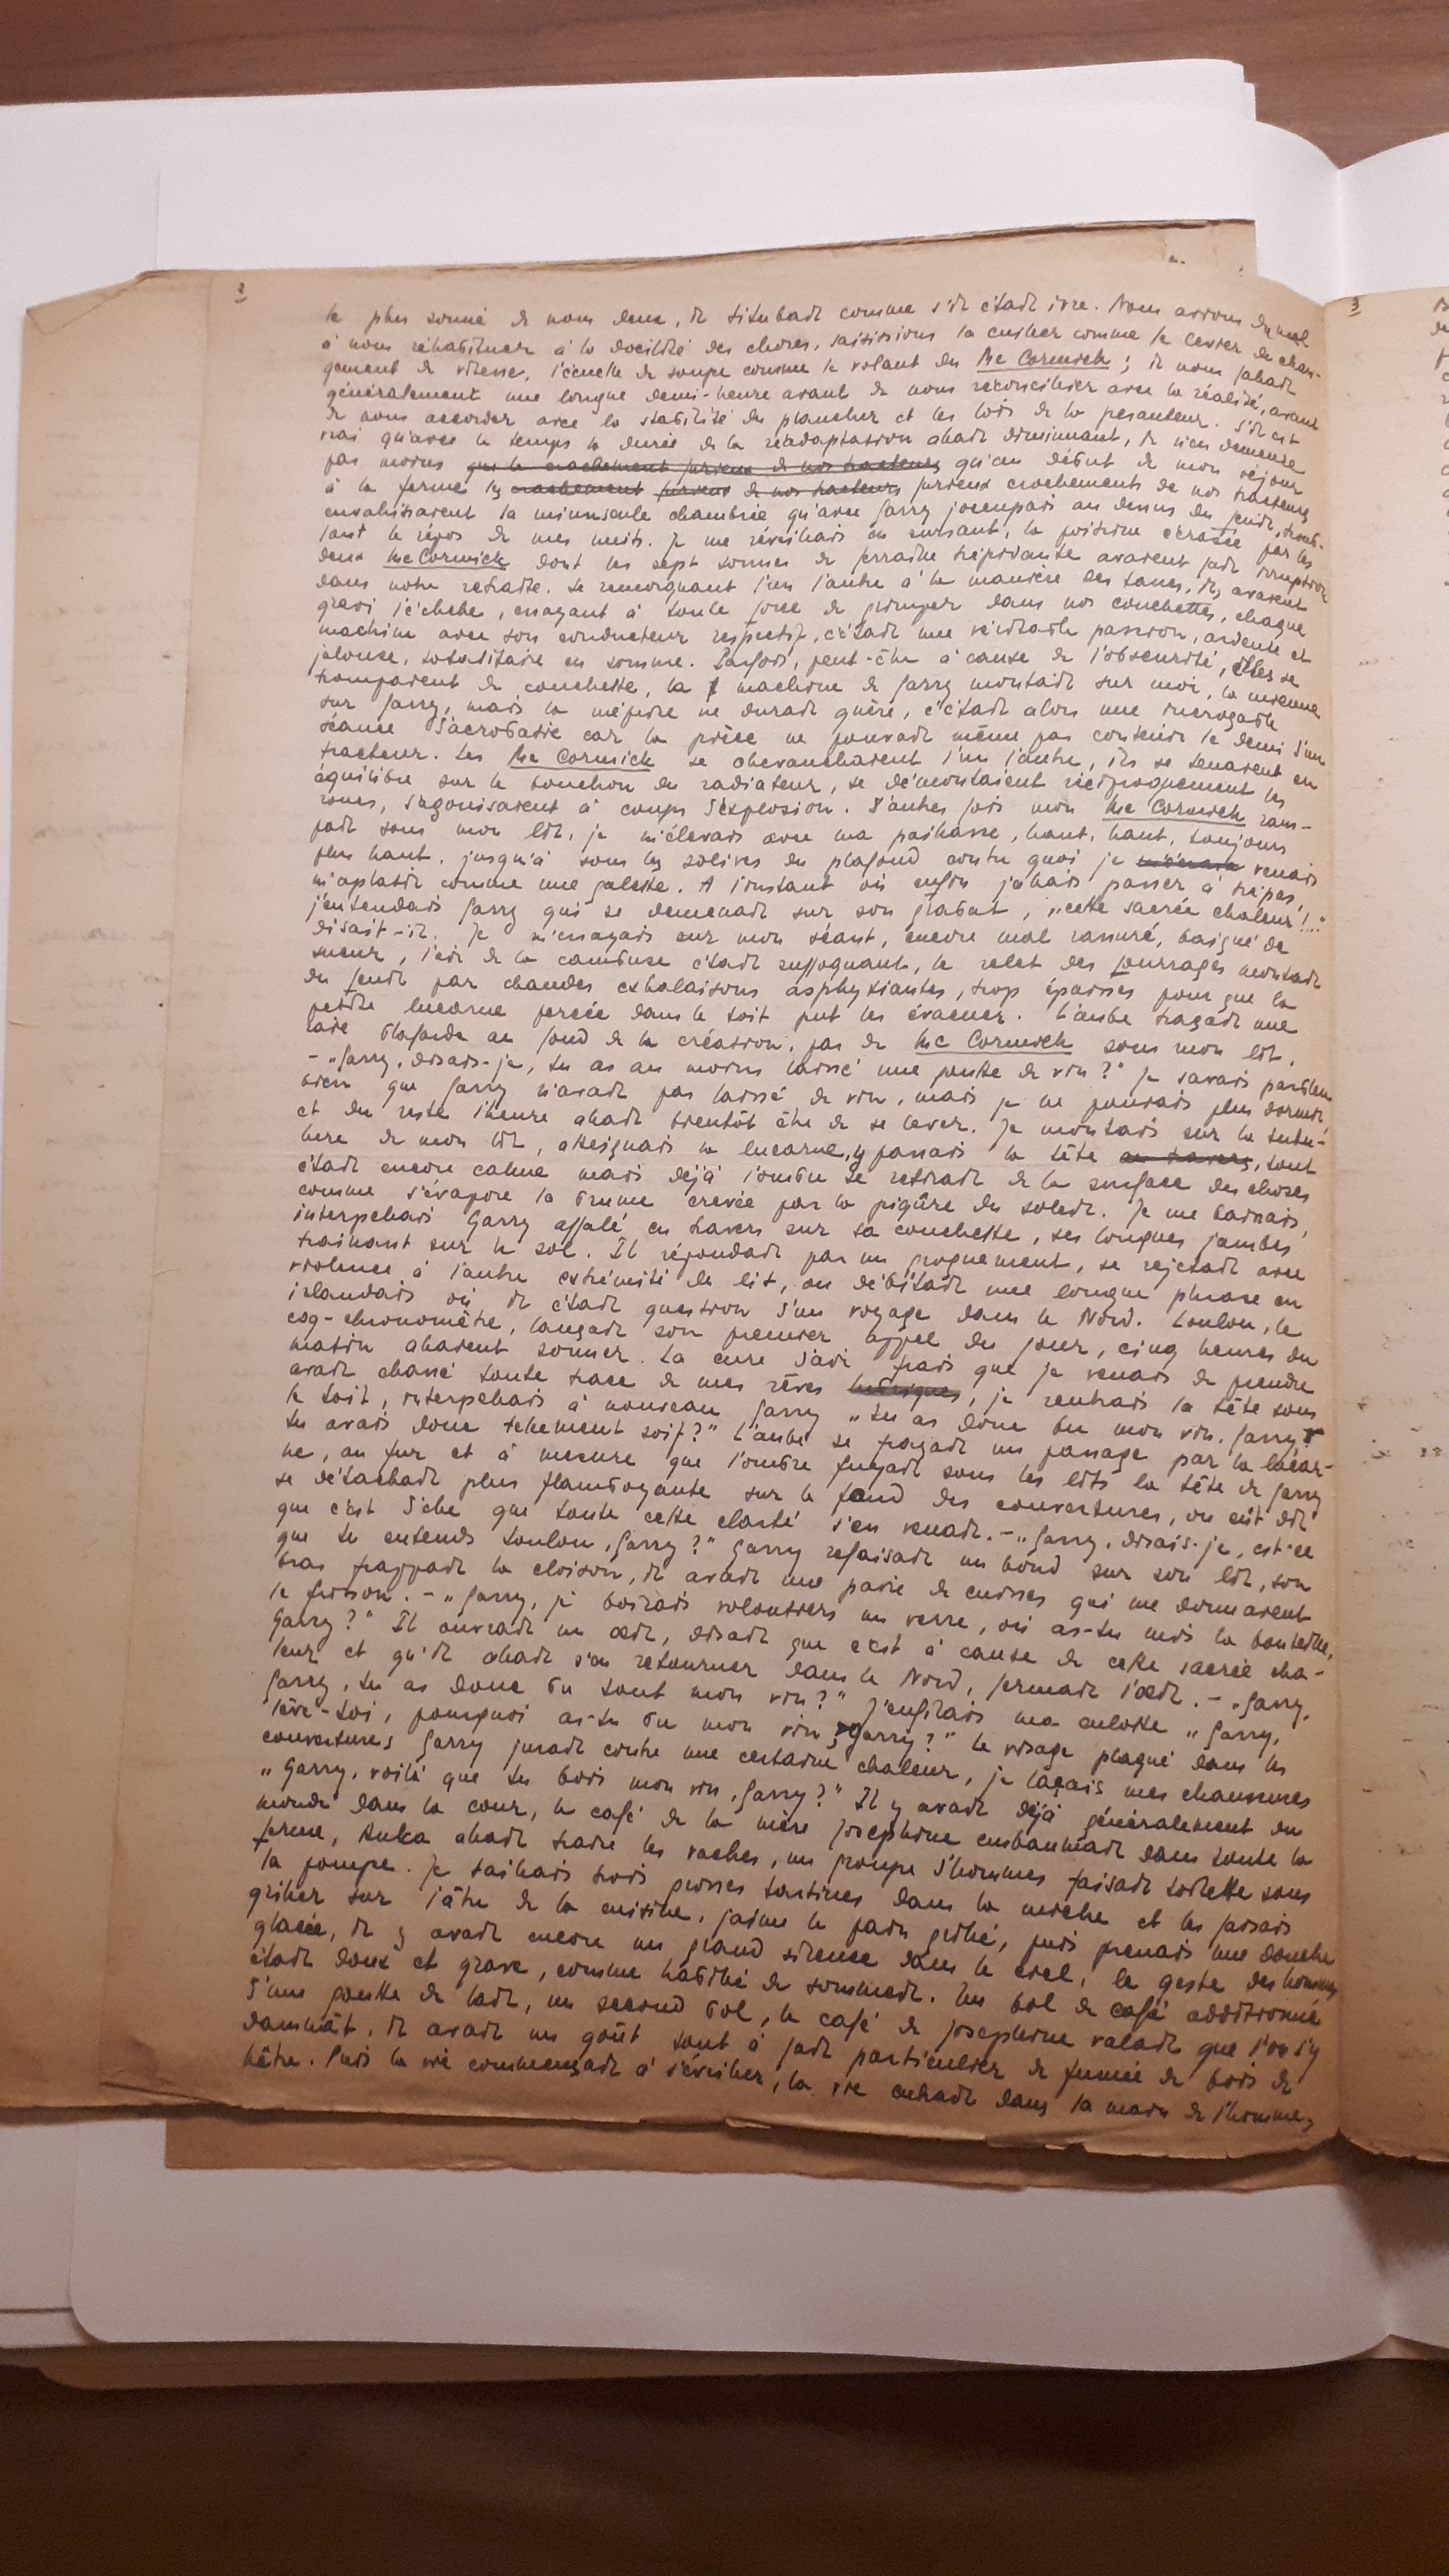 2
le plus sonné de nous deux, il titubait comme s'il était ivre. Nous avions du mal
à nous réhabituer à la docilité des choses, saisissions la cuiller comme le levier de chan-
gement de vitesse, l'écuelle de soupe comme le volant du Mc Cormick ; il nous fallait
généralement une longue demi-heure avant de nous réconcilier avec la réalité, avant
de nous accorder avec la stabilité du plancher et les lois de la pesanteur. S'il est
vrai qu'avec le temps la durée de la réadaptation allait diminuant, il n'en demeure
pas moins que le crachement furieux de nos tracteurs qu'au début de mon séjour
à la ferme les crachement furieux de nos tracteurs furieux crachements de nos tracteurs
envahissaient la minuscule chambrée qu'avec Garry j'occupais au dessus du fenil, troub-
lant le repos de mes nuits. Je me réveillais en sursaut, la poitrine écrasée par les
deux Mc Cormick dont les sept tonnes de ferraille trépidante avaient fait irruption
dans notre retraite. Se remorquant l'un l'autre à la manière des tanks, ils avaient
gravi l'échelle, essayant à toute force de grimper dans nos couchettes, chaque
machine avec son conducteur respectif, c'était une véritable passion, ardente et
jalouse, totalitaire en somme. Parfois, peut-être à cause de l'obscurité, elles se
trompaient de couchette, la machine de Garry montait sur moi, la mienne
sur Garry, mais la méprise ne durait guère, c'était alors une incroyable
séance d'acrobatie car la pièce ne pouvait même pas contenir le demi d'un
tracteur. Les Mc Cormick se chevauchaient l'un l'autre, ils se tenaient en
équilibre sur le bouchon du radiateur, se démontaient réciproquement les
roues, s'agonisaient à coups d'explosion. D'autres fois mon Mc Cormick ram-
pait sous mon lit, je m'élevais avec ma paillasse, haut, haut, toujours
plus haut, jusqu'à sous les solives du plafond contre quoi je m'écrasa venais
m'aplatir comme une galette. A l'instant où enfin j'allais passer à trépas,
j'entendais Garry qui se demenait sur son grabat, „cette sacrée chaleur !.."
disait-il. Je m'essayais sur mon séant, encore mal rassuré, baigné de
sueur, l'air de la cambuse était suffoquant, le relet des fourrages montait
du fenil par chaudes exhalaisons asphyxiantes, trop épaisses pour que la
petite lucarne percée dans le toit put les évacuer. L'aube traçait une
raie blafarde au fond de la création, pas de Mc Cormick sous mon lit.
- „Garry, disais-je, tu as au moins laissé une goutte de vin ?" Je savais pourtant
bien que Garry n'avait pas laissé de vin, mais je ne pouvais plus dormir,
et du reste l'heure allait bientôt être de se lever. Je montais sur la tubu-
lure de mon lit, atteignais la lucarne, y passais la tête au travers, tout
était encore calme mais déjà l'ombre se retirait de la surface des choses
comme s'évapore la brume crevée par la piqûre du soleil. Je me baissais,
interpellais Garry affalé en travers sur sa couchette, ses longues jambes
trainant sur le sol. Il répondait par un grognement, se rejetait avec
violence à l'autre extrémité du lit, ou débitait une longue phrase en
irlandais où il était question d'un voyage dans le Nord. Toulon, le
coq-chronomètre, lançait son premier appel du jour, cinq heures du
matin allaient sonner. La cure d'air frais que je venais de prendre
avait chassé toute trace de mes rêves lubriques, je rentrais la tête sous
le toit, interpellais à nouveau Garry „tu as donc bu mon vin, Garry?
tu avais donc tellement soif ?" L'aube se frayait un passage par la lucar-
ne, au fur et à mesure que l'ombre fuyait sous les lits la tête de Garry
se détachait plus flamboyante sur le fond des couvertures, on eût dit
que c'est d'elle que toute cette clarté s'en venait. - „Garry, disais-je, est-ce
que tu entends Toulon, Garry ?" Garry refaisait un bond sur son lit, son
bras frappait la cloison, il avait une paire de cuisses qui me donnaient
le frisson. - „Garry, je boirais volontiers un verre, où as-tu mis la bouteille,
Garry ?" Il ouvrait un œil, disait que c'est à cause de cette sacrée cha-
leur et qu'il allait s'en retourner dans le Nord, fermait l'œil. - „Garry,
Garry, tu as donc bu tout mon vin ?" J'enfilais ma culotte „Garry,
lève-toi, pourquoi as-tu bu mon vin, Garry ?" Le visage plaqué dans les
couvertures Garry jurait contre une certaine chaleur, je laçais mes chaussures
„Garry, voilà que tu bois mon vin, Garry ?" Il y avait déjà généralement du
monde dans la cour, le café de la mère Josephine embaumait dans toute la
ferme, Anka allait traire les vaches, un groupe d'hommes faisait toilette sous
la pompe. Je taillais trois grosses tartines dans la miche et les faisais
griller sur l'âtre de la cuisine, j'aime le pain grillé, puis prenais une douche
glacée, il y avait encore un grand silence dans le ciel, le geste des hommes
était doux et grave, comme habillé de sommeil. Un bol de café additionné
d'une goutte de lait, un second bol, le café de Josephine valait que l'on s'y
damnât, il avait un goût tout à fait particulier de fumée de bois de
hêtre. Puis la vie commençait à s'éveiller, la vie entrait dans la main de l'homme,
3